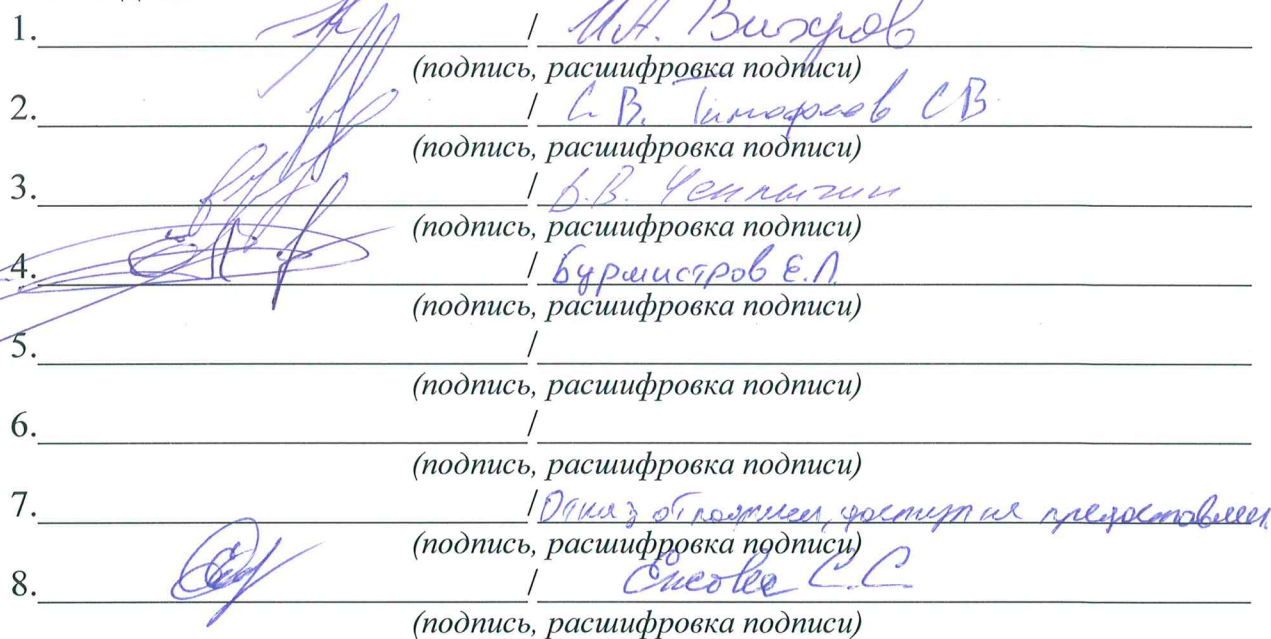 1. / И.А. Вихров
(подпись, расшифровка подписи)
2. / С.В. Тимофеев СВ
(подпись, расшифровка подписи)
3. / В.В. Чеплыгин
(подпись, расшифровка подписи)
4. / Бурмистров Е.Л.
(подпись, расшифровка подписи)
5. /
(подпись, расшифровка подписи)
6. /
(подпись, расшифровка подписи)
7. / Отказ от подписи, доступ не предоставлен
(подпись, расшифровка подписи)
8. / С.С.
(подпись, расшифровка подписи)